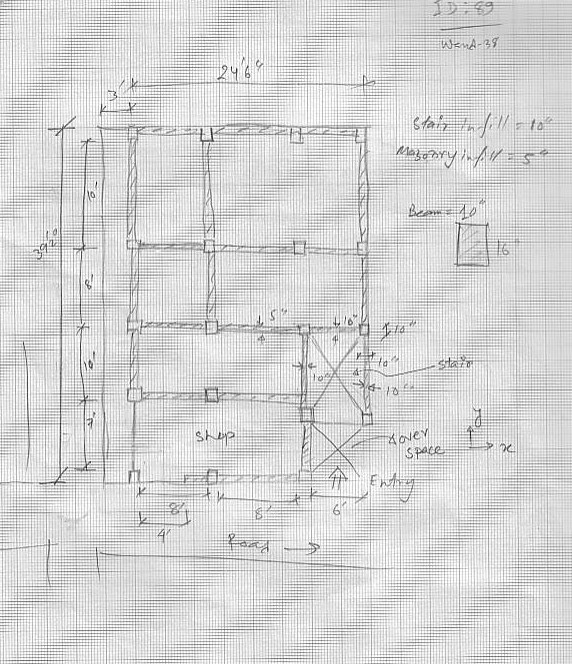 ID: 89
WenA-38
24'6"
3'
Stair infill = 10"
Masonry infill = 5"
Beam = 10"
16"
10'
39'
8'
5"
10"
10"
10'
10"
10"
Stair
10"
7'
Shop
over
space
y
x
Entry
8'
8'
6'
4'
Road →